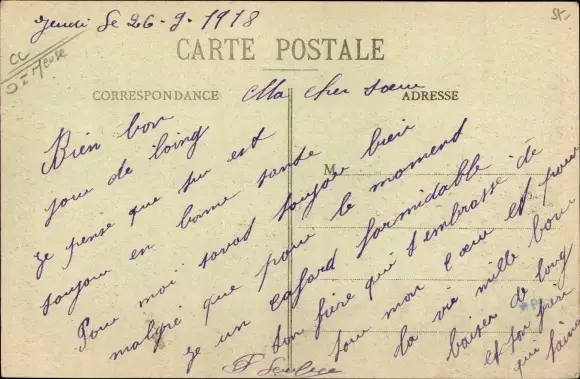 Jeudi le 26-9-1918
CARTE POSTALE
CORRESPONDANCE
ADRESSE
Ma cher sœur
M
Bien bon
jour de loing
je pense que tu est
toujour en bonne sante
Pour moi savas toujour bien
malgré que pour le moment
je un cafard formidable
ton frère qui t'embrasse de
tout mon cœur et pour
la vie mille bour
baiser de loing
et ton frère
qui t'aime